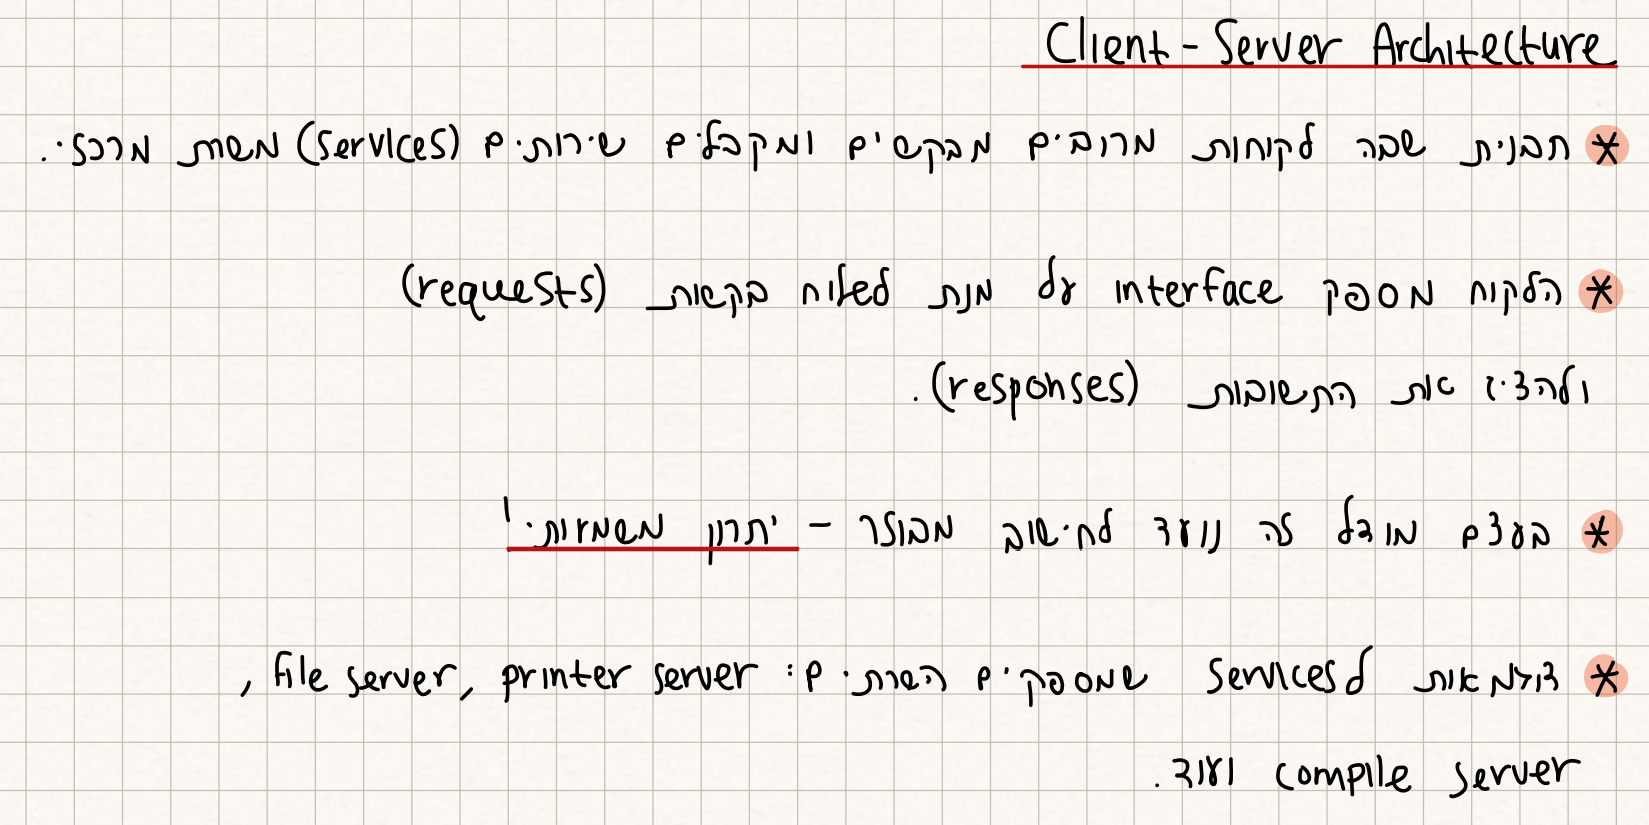 Client-Server Architecture
* תבנית שבה לקוחות מרובים מבקשים ומקבלים שירותים (services) משרת מרכזי.
* הלקוח מספק interface על מנת לשלוח בקשות (requests)
ולהציג את התשובות (responses).
* בעצם מודל זה נועד לחישוב מבוזר - יתרון משמעותי!
* דוגמאות לservices שמספקים השרתים: file server, printer server,
compile server ועוד.